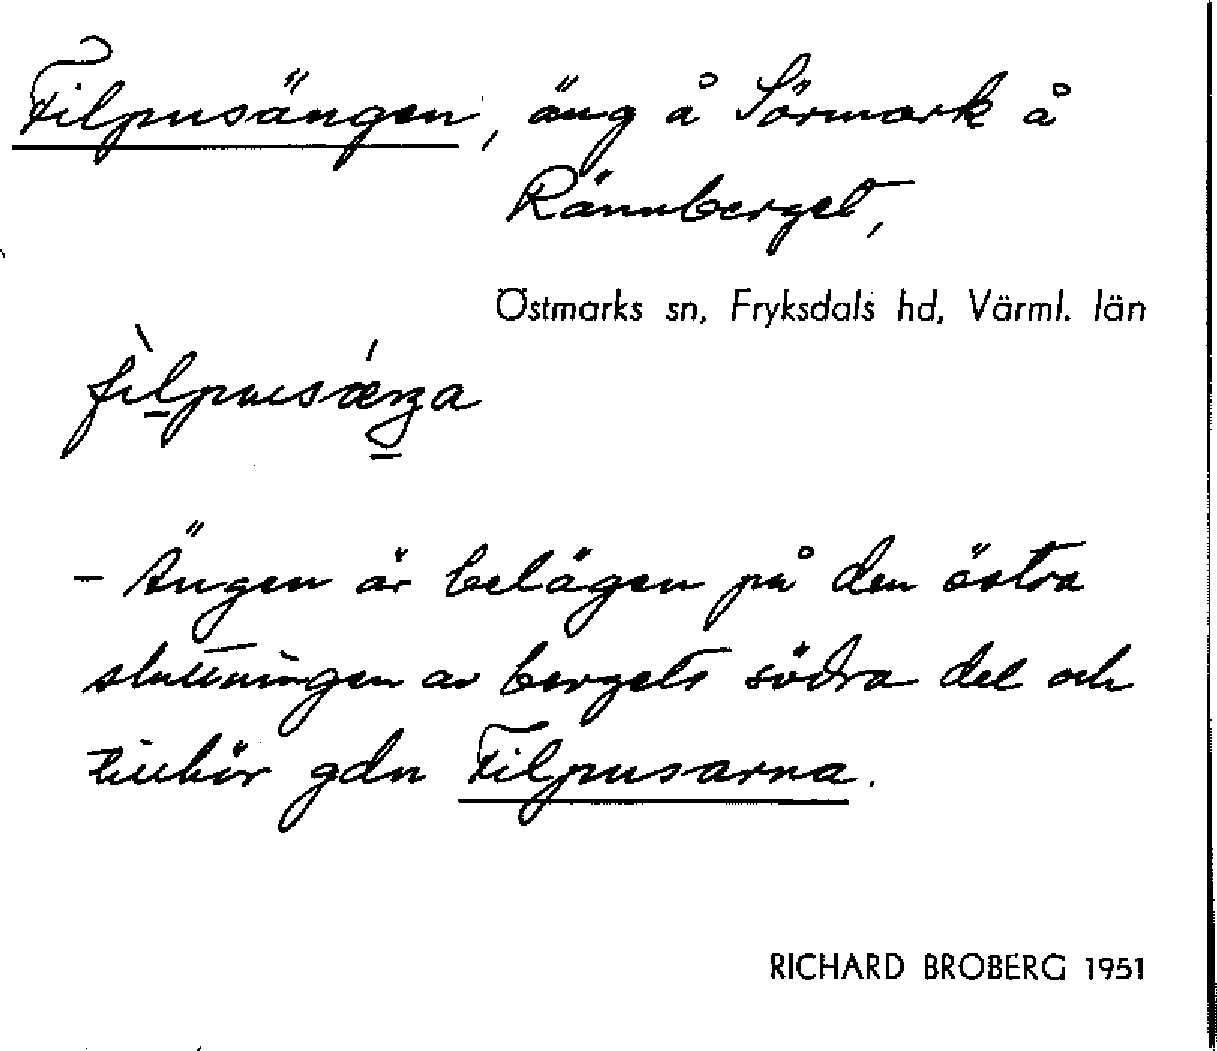 Filpusängen, äng å Sörmark å
Rännberget,
Östmarks sn, Fryksdals hd, Värml. län
fìlpusǽŋa
- Ängen är belägen på den östra
sluttningen av bergets södra del och
tillhör gdn Filpusarna.
RICHARD BROBERG 1951